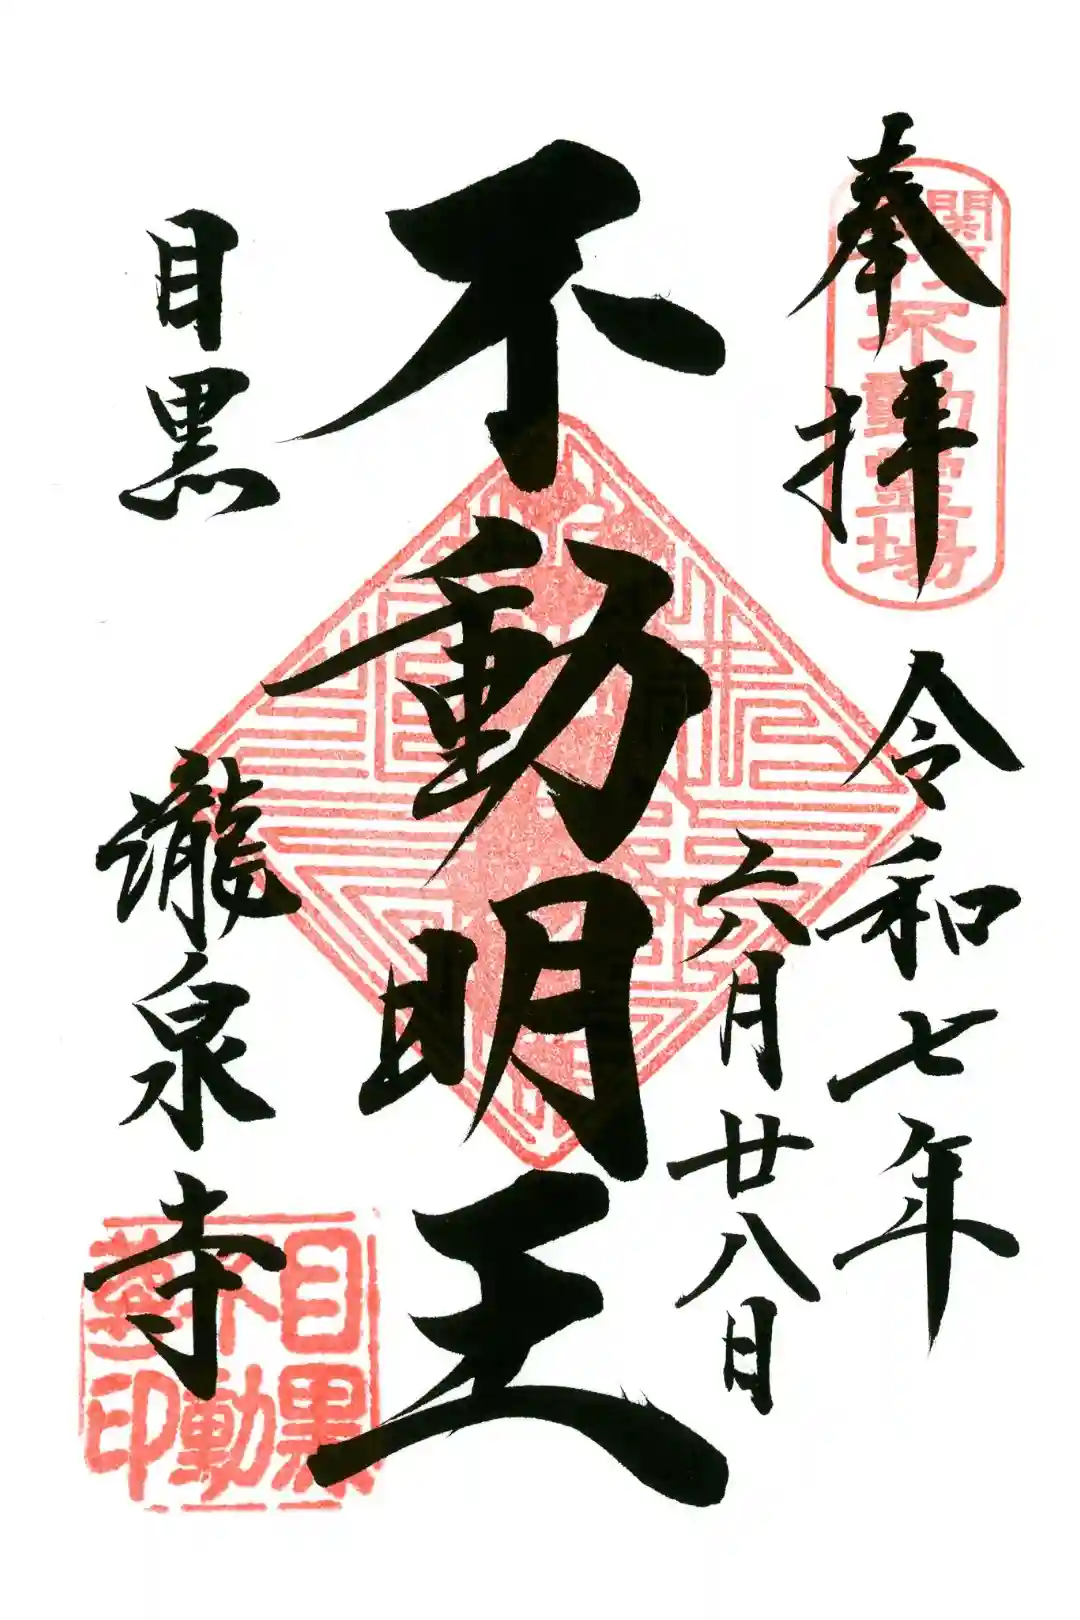 奉拝
関東不動霊場
令和七年
六月廿八日
不動明王
目黒
瀧泉寺
目黒
不動
印